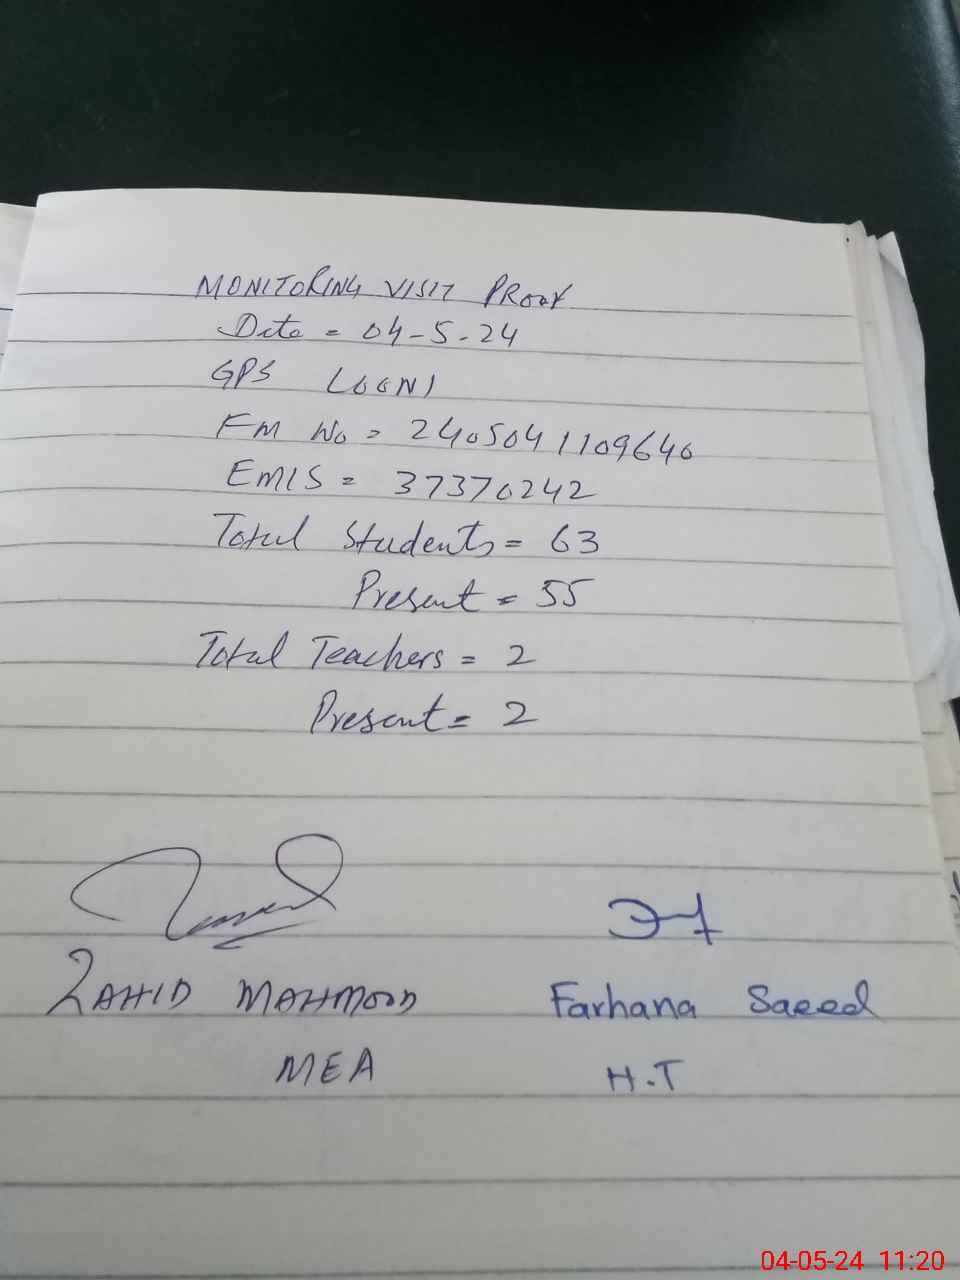 MONITORING VISIT PROOF
Date = 04-5-24
GPS LOONI
FM No = 2405041109640
EMIS = 37370242
Total Students = 63
Present = 55
Total Teachers = 2
Present = 2
ZAHID MAHMOOD Farhana Saeed
MEA H.T
04-05-24 11:20